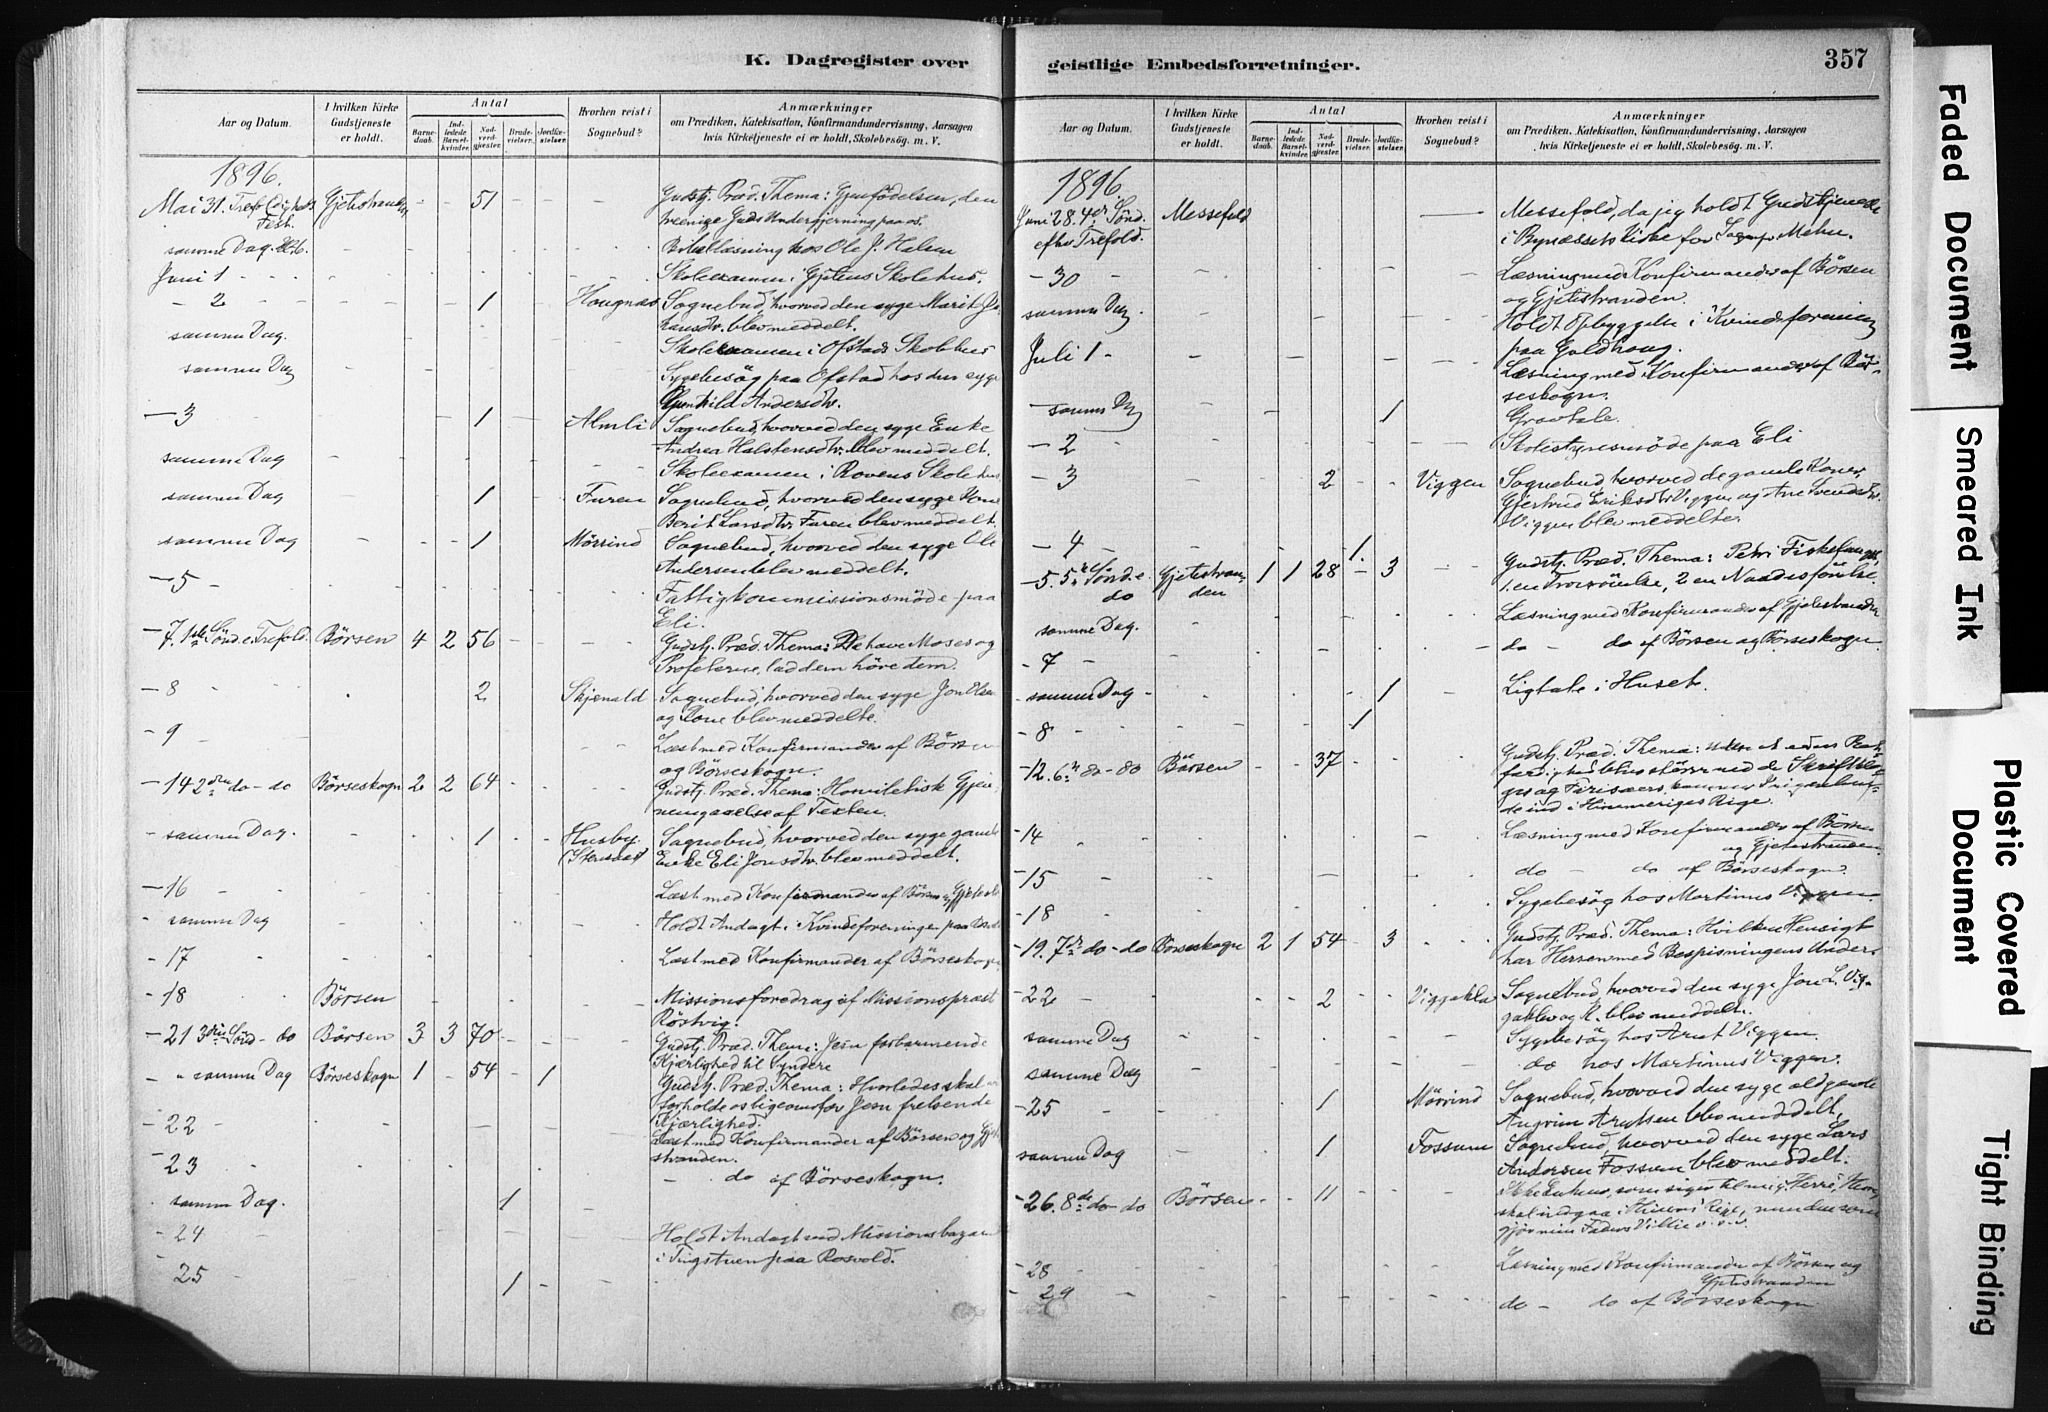 K. Dagregister over
Aar og Datum.
I hvilken Kirke Gudstjeneste er holdt.
Antal
Barnedaab.
Indledede Barselkvinder.
Nadverdgjæster.
Brudevielser.
Jordfæstelser.
Hvorhen reist i Sognebud?
Anmærkninger
om Prædiken, Katekisation, Konfirmandundervisning, Aarsagen
hvis Kirketjeneste ei er holdt, Skolebesög. m. V.
1896.
Mai 31. - - 51 Gudstj. Præd. Thema: Gjenfödelsen, den
treenige Guds Undergjerning paa os.
samme Dag Bibellæsning hos Ole J. Halsen
Juni 1 - - - - Skoleexamen i Gjetens Skolehus.
- 2 - - - 1 Hougnæs Sognebud, hvorved den syge Marit Jo-
hansdtr. blev meddelt.
samme Dag. Skoleexamen i Ofstads Skolehus
samme Dag Sygebesög paa Ofstad hos den syge
Gunhild Andersdtr.
- 3 1 Almli Sognebud, hvorved den syge Enke
Andrea Halstensdtr. blev meddelt.
samme Dag Skoleexamen i Rovens Skolehus
samme Dag 1 Furen Sognebud, hvorved den syge Kone
Berit Larsdtr. Furen blev meddelt.
samme Dag 1 Mörsind Sognebud, hvorved den syge Ole
Andersen blev meddelt.
- 5 - Fattigkommissionsmöde paa
Eli.
- 7. 1ste Sönd. e. Trefold. Börsen 4 2 56 - - - Gudstj. Præd. Thema: De have Moses og
Profeterne, lad dem höre dem.
- 8 2 Skjenald Sognebud, hvorved den syge Jon Olsen
og Kone blev meddelte.
- 9 - Læst med Konfirmander af Börsen
og Börseskogn.
- 14 2den do - do Börseskogn 2 2 64 - - - Gudstj. Præd. Thema: Homiletisk Gjen-
nemgaaelse af Texten.
- samme Dag. 1 Husby Sognebud, hvorved den syge gamle
Enke Eli Jonsdtr. blev meddelt.
- 16 Læst med Konfirmander af Börsen og
- samme Dag Holdt Andagt i Kvindeforeningen paa
- 17 Læst med Konfirmander af Börseskogn
- 18 Börsen Missionsforedrag af Missionsprest
Röstvig.
- 21 3die Sönd - do Börsen 3 3 70 - - - Gudstj. Præd. Thema: Jesu forbarmende
Kjærlighed til Syndere
- " samme Dag Börseskogn 1 - 54 - 1 Gudstj. Præd. Thema: Hvorledes skal vi
forholde os ligeoverfor Jesu frelsende
Kjærlighed.
- 22 - Læst med Konfirmander af Börsen og Gjete
stranden.
- 23 - do af Börseskogn.
samme Dag. 1
- 24 Holdt Andagt ved Missionsbazaren
i Tingstuen paa Rosvold.
- 25 1 -
geistlige Embedsforretninger.
357
Aar og Datum.
I hvilken Kirke Gudstjeneste er holdt.
Antal
Barnedaab.
Indledede Barselkvinder.
Nadverdgjæster.
Brudevielser.
Jordfæstelser.
Hvorhen reist i Sognebud?
Anmærkninger
om Prædiken, Katekisation, Konfirmandundervisning, Aarsagen
hvis Kirketjeneste ei er holdt, Skolebesög. m. V.
1896.
Juni 28. 4de Sönd. Messefald Messefald, da jeg holdt Gudstjeneste
efter Trefold. i Bynæssets Kirke for Sognepr.
- 30 Læsning med Konfirmander af Börsen
og Gjetestranden.
samme Dag. Holdt Opbyggelse i Kvindeforening
paa Guldhaug.
Juli 1 - Læsning med Konfirmander af Bör-
seskogn.
- samme Dag 1 Gravtale.
- 2 Skolestyresmöde paa Eli
- 3 2 - - Viggen Sognebud, hvorved de gamle Koner,
Gjertrud Eriksdtr Viggen og Ane Svendsdtr.
Viggen blev meddelte.
- 4 1.
- 5. 5te Sönd. e. do Gjetestranden 1 1 28 - 3 Gudstj. Præd. Thema: Petri Fiskefangst,
1. en Troesövelse, 2 en Naadesförelse.
samme Dag. Læsning med Konfirmander af Gjetestranden
- 7 - do - do af Börsen og Börseskogn.
- samme Dag - 1 Ligtale i Huset.
- 8 1
- 12. 6te do - do Börsen 37 Gudstj. Præd. Thema: Uden at eders Ret-
færdighed blive större end de Skriftklo-
ges og Farisæers, komme I ingenlun-
de ind i Himmeriges Rige.
- 14 Læsning med Konfirmander af Börsen
og Gjetestranden.
- 15 do - do af Börseskogn.
- 18 Sygebesög hos Martinus Viggen.
- 19. 7de do - do Börseskogn 2 1 54 - 3 Gudstj. Præd. Thema: Hvilken Hensigt
har Herren med Bespisningens Under.
- 22 2 Viggakl Sognebud, hvorved den syge Jon L. Vig-
gaklev og K. blev meddelt.
samme Dag Sygebesög hos Arnt Viggen.
samme Dag do hos Martinus Viggen.
- 25 1 Mörsind Sognebud, hvorved den syge
Arntsen blev meddelt.
samme Dag 1 Fossum Sognebud, hvorved den syge Lars
Andersen Fossum blev meddelt.
- 26. 8de do - do Börsen - - 11 Ikke Enhver, som siger til mig: Herre, Herre,
skal indgaa i Himmeriges Rige, men den som
gjör min Faders Villie o. s. v.
- 28 Læsning med Konfirmander af Börsen og
Gjetestranden
- 29 do - do af Börseskogn
Faded Document
Smeared Ink
Plastic Covered Document
Tight Binding